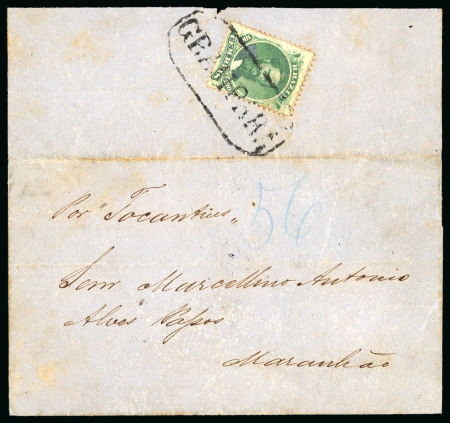 BRAZIL
Por "Tocantins"
56
Senr Marcellino Antonio
Alves Passos
Maranhão